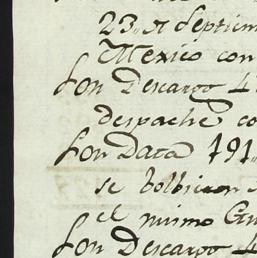 23. de Septiem
Mexico con
Son Descargo 4
despachè co
Son Data 191
se bolbieron
el mismo Cu
Son Descargo 4